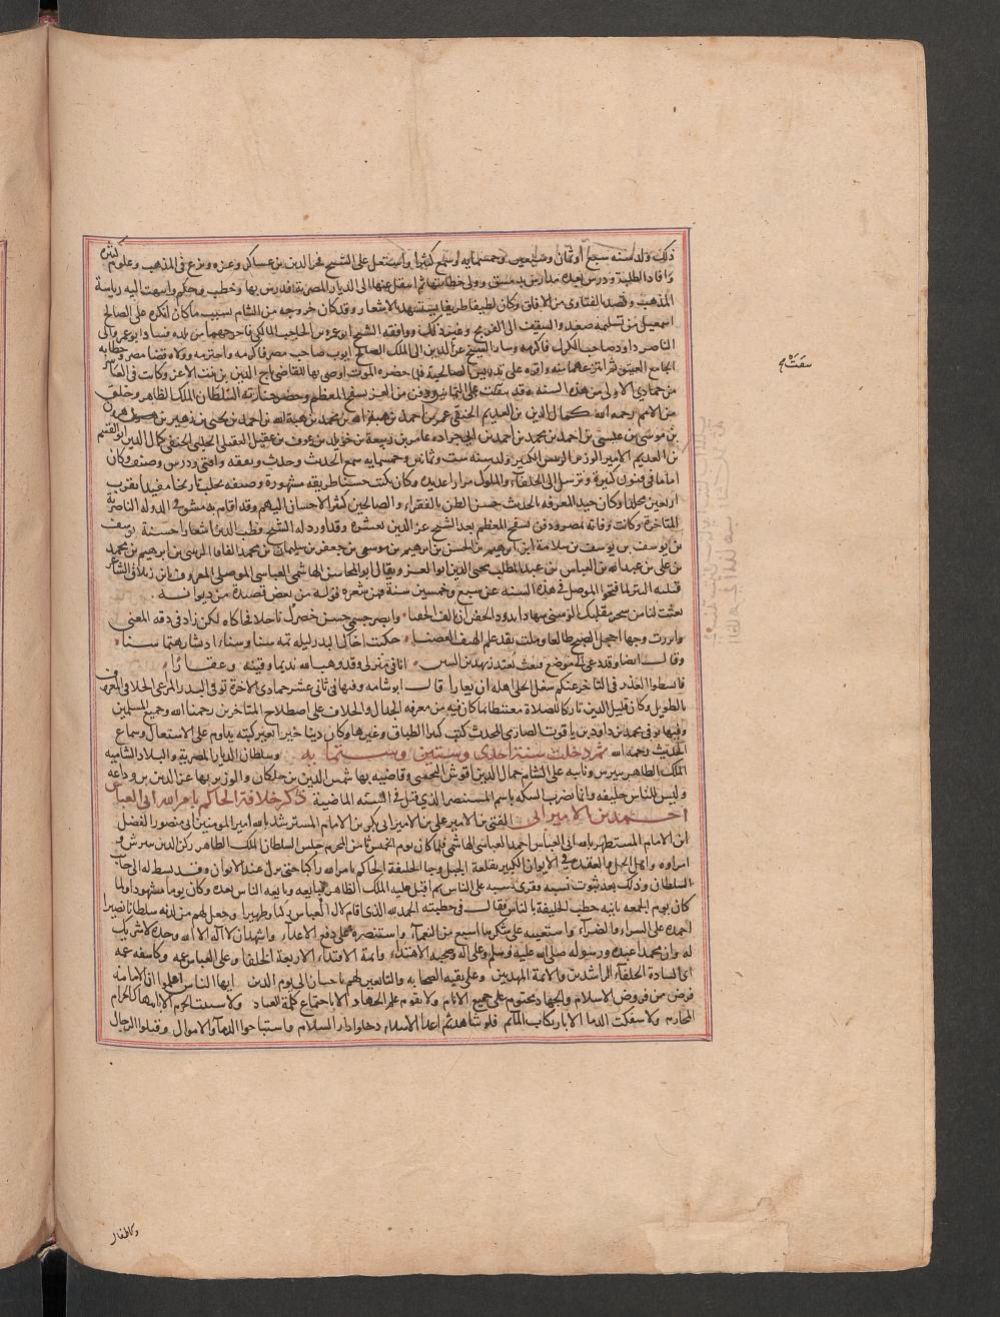 ذلك ولد سنة سبع أو ثمان وسبعين وخمسمايه وسمع كثيرا واشتغل على الشيخ فخر الدين بن عساكر وغيره وبرع في المذهب وعلوم كثيره
وافاد الطلبة ودرس بعده مدارس بدمشق وولى خطابتها ثم انتقل عنها الى الديار المصرية فدرس بها وخطب وحكم وانتهت اليه رياسة
المذهب وقصد بالفتاوى من الافاق وكان لطيفا ظريفا يستشهد بالاشعار وقد كان خروجه من الشام بسبب ما كان انكره على الصالح
اسمعيل من تسلمه صفد والسقيف الى الفرنج ووافقه الشيخ ابو عمرو بن الحاجب المالكي فاخرجهما من بلده فسار ابو عمرو الى
الناصر داود صاحب الكرك فاكرمه وسار الشيخ عز الدين الى الملك الصالح ايوب صاحب مصر فاكرمه واحترمه وولاه قضا مصر وخطابه
الجامع العتيق ثم انتزعهما منه واقره على تدريس الصالحية فلما حضره الموت اوصى بها للقاضي تاج الدين بن بنت الاعز وكانت وفاته في العاشر
من جمادى الاولى من هذه السنه وقد نيف على الثمانين ودفن من الغد بسفح المقطم وحضر جنازته السلطان الملك الظاهر وخلق
من الامم رحمه الله كمال الدين بن العديم الحنفي عمر بن احمد بن هبة الله بن محمد بن هبة الله بن احمد بن يحيى بن زهير بن هرون
بن موسى بن عيسى بن احمد بن محمد بن احمد بن ابي جراده عامر بن ربيعة بن خويلد بن عوف بن عقيل العقيلي الحلبي الحنفي كمال الدين ابو القسم
بن العديم الامير الوزير الرئيس الكبير ولد سنه ست وثمانين وخمسمايه سمع الحديث وحدث وتفقه وافتى ودرس وصنف وكان
اماما في فنون كثيرة وترسل الى الخلفاء والملوك مرارا عديدة وكان يكتب حسنا طريقه مشهورة وصنف لحلب تاريخا مفيدا يقرب
اربعين مجلدا وكان جيد المعرفه بالحديث حسن الظن بالفقراء والصالحين كثير الاحسان اليهم وقد اقام بدمشق في الدوله الناصريه
المتاخرة وكانت وفاته بمصر ودفن بسفح المقطم بعد الشيخ عز الدين بعشرة وقد اورد له الشيخ قطب الدين اشعارا حسنة يوسف
بن يوسف بن يوسف بن سلامة ابن ابراهيم بن الحسن بن ابراهيم بن موسى بن جعفر بن سليمان بن محمد الفافا الزينبي بن ابراهيم بن محمد
بن علي بن عبد الله بن العباس بن عبد المطلب محيي الدين ابو العز ويقال ابو المحاسن الهاشمي العباسي الموصلي المعروف بابن زبلاق الشاعر
قتله التتر لما فتحوا الموصل في هذه السنه عن سبع وخمسين سنة فمن شعره قوله من بعض قصيدة من ديوانه
بعثت لنا من سحر مقلتك الوسنى سهادا يذود الجفن ان يالف الجفنا وابصر جسمي حسن خصرك ناحلا فحاكاه لكن زاد في دقه المعنى
وابرزت وجها اخجل الصبح طالعا وملت بقد علم الهيف الغصنا حكيت اخاك البدر ليلة تمه سنا وسناء اذ تشابهتما سنا
وقال ايضا وقد دعي الى موضع فبعث يعتذر بهذين البيتين انا في منزلي وقد وهب الله نديما وقينة وعقارا
فابسطوا العذر في التاخر عنكم شغل الحلي اهله ان يعارا قال ابو شامه وفيها في ثاني عشر جمادى الاخرة توفي البدر المراغي الخلافي المعروف
بالطويل وكان قليل الدين تاركا للصلاة مغتبطا بما كان فيه من معرفه الجدال والخلاف على اصطلاح المتاخرين رحمنا الله وجميع المسلمين
وفيها توفي محمد بن داود بن ياقوت الصارمي المحدث كتب كثيرا الطباق وغيرها وكان دينا خيرا يعير كتبه يداوم على الاشتغال وسماع
الحديث رحمه الله ثم دخلت سنة احدى وستين وستمايه وسلطان الديار المصرية والبلاد الشاميه
الملك الظاهر بيبرس ونايبه على الشام جمال الدين اقوش النجيبي وقاضيه بها شمس الدين بن خلكان والوزير بها عز الدين بن وداعه
وليس للناس خليفه وانما تضرب السكه باسم المستنصر الذي قتل في السنه الماضية ذكر خلافة الحاكم بامر الله ابي العباس
احمد بن الامير ابي القبي بن الامير علي بن الامير ابي بكر بن الامام المسترشد بالله امير المومنين ابي منصور الفضل
ابن الامام المستظهر بالله ابي العباس احمد العباسي الهاشمي فلما كان يوم الخميس ثامن المحرم جلس السلطان الملك الظاهر ركن الدين بيبرس و
امراوه واهل الحل والعقد في الايوان الكبير بقلعة الجبل وجا الخليفة الحاكم بامر الله راكبا حتى نزل عند الايوان وقد بسط له الى جانب
السلطان وذلك بعد ثبوت نسبه وقرى نسبه على الناس ثم اقبل عليه الملك الظاهر فبايعه وبايعه الناس بعده وكان يوما مشهودا ولما
كان يوم الجمعه ثانيه خطب الخليفة بالناس فقال في خطبته الحمد لله الذي اقام لال العباس ركنا وظهيرا وجعل لهم من لدنه سلطانا نصيرا
احمده على السراء والضراء واستعينه على شكر ما اسبغ من النعماء واستنصره على دفع الاعداء واشهد ان لا اله الا الله وحده لا شريك
له وان محمدا عبده ورسوله صلى الله عليه وسلم وعلى اله وصحبه نجوم الاهتداء وائمة الاقتداء الاربعة الخلفا وعلى العباس عمه وكاشف غمه
ابي السادة الخلفاء الراشدين والائمة المهديين وعلى بقيه الصحابه والتابعين لهم باحسان الى يوم الدين ايها الناس اعلموا ان الامامه
فرض من فروض الاسلام والجهاد محتوم على جميع الانام ولا يقوم علم الجهاد الا باجتماع كلمة العباد ولا سبيت الحرم الا بانتهاك
المحارم ولا سفكت الدما الا بارتكاب الماثم فلو شاهدتم اعدا الاسلام دخلوا دار السلام واستباحوا الدماء والاموال وقتلوا الرجال
والاطفال